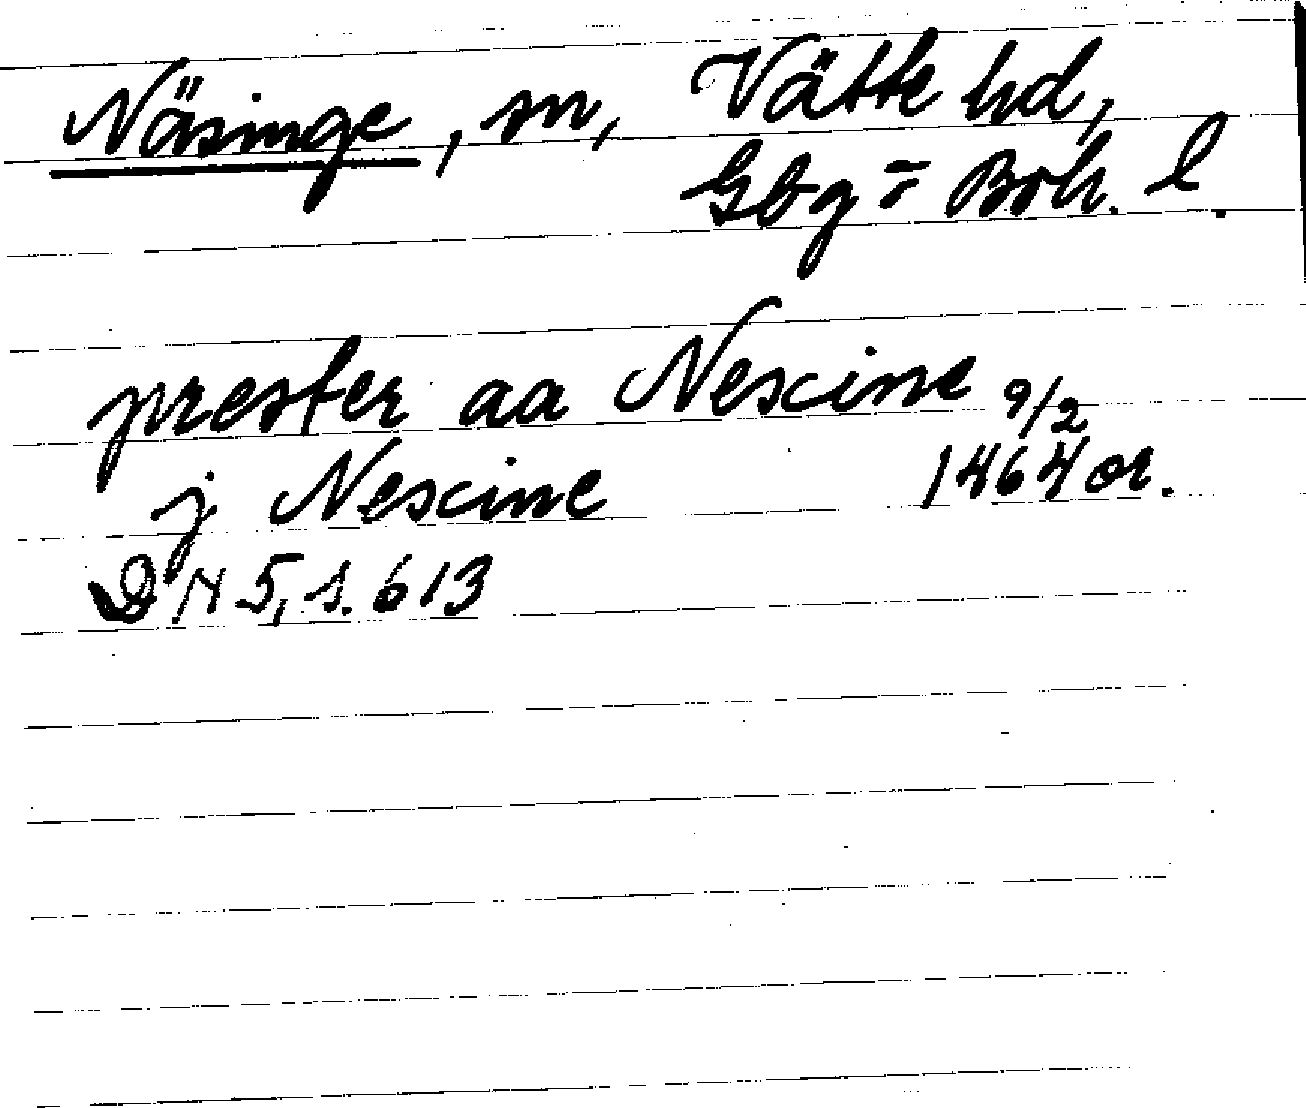 Näsinge, sn, Vätte hd,
Gbg = Boh. l.
prester aa Nescine 9/2
j Nescine 1464 or.
DN 5, s. 613